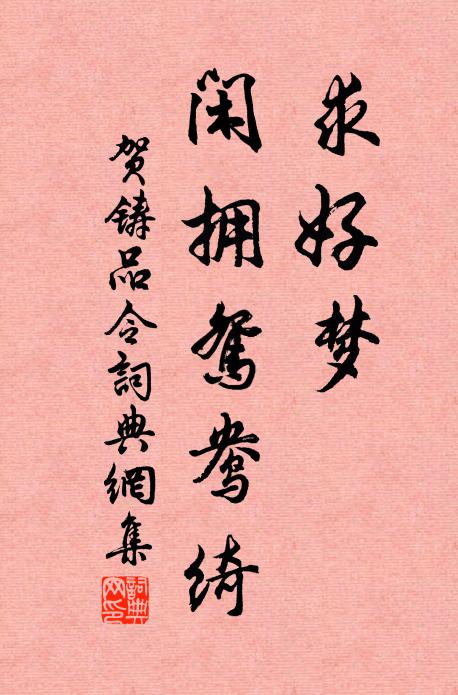 求好梦
闲拥鸳鸯绮
贺铸品令詞典網集
詞典网印